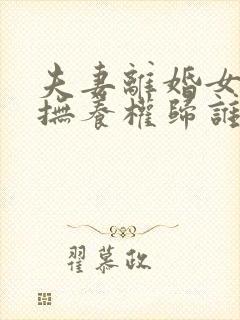 夫妻離婚女
撫養權歸誰
翟慕政